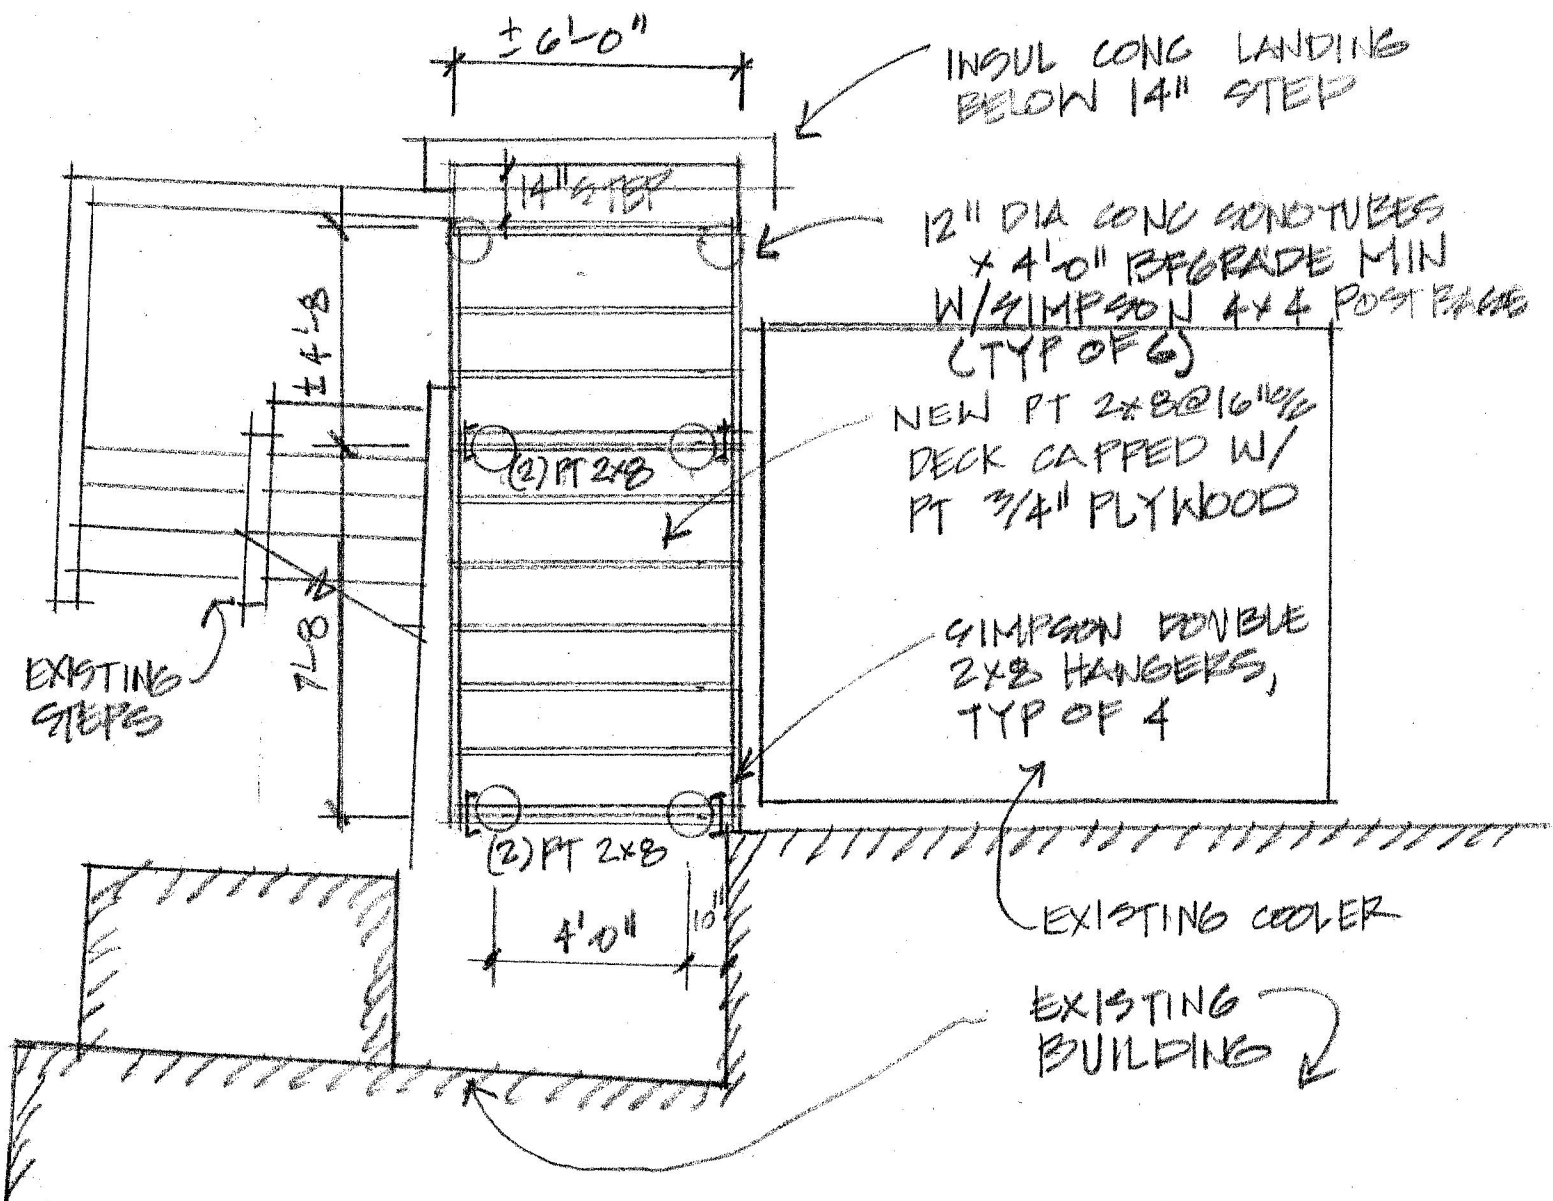 ± 6'-0"
INSUL CONC LANDING
BELOW 14" STEP
14" STEP
12" DIA CONC SONOTUBES
x 4'-0" BFGRADE MIN
W/SIMPSON 4x4 POSTBASE
(TYP OF 6)
± 4'-8
NEW PT 2x8@16"o/c
DECK CAPPED W/
PT 3/4" PLYWOOD
(2) PT 2x8
7'-8
SIMPSON DOUBLE
2x8 HANGERS,
TYP OF 4
EXISTING
STEPS
(2) PT 2x8
4'-0"
10"
EXISTING COOLER
EXISTING
BUILDING